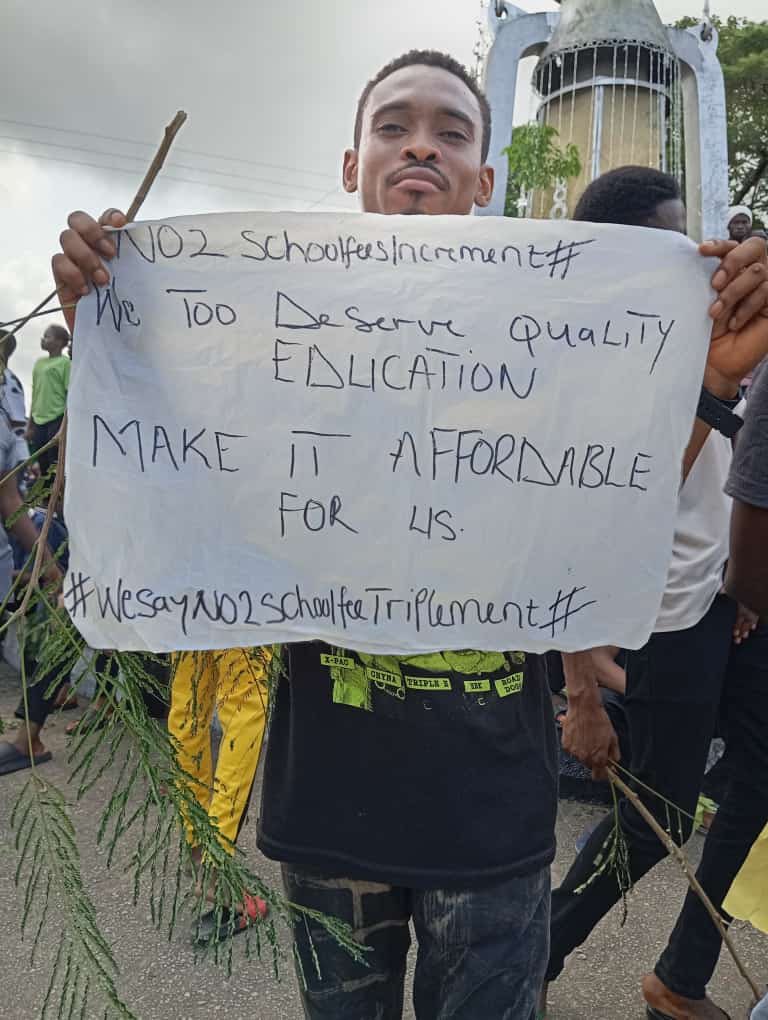 NO2 SchoolfeesIncrement#
We Too Deserve QUALITY
EDUCATION
MAKE IT AFFORDABLE
FOR US.
#WeSayNO2SchoolfeeTriplement#
X-PAC
CHYNA
TRIPLE H
ROAD
DOGG